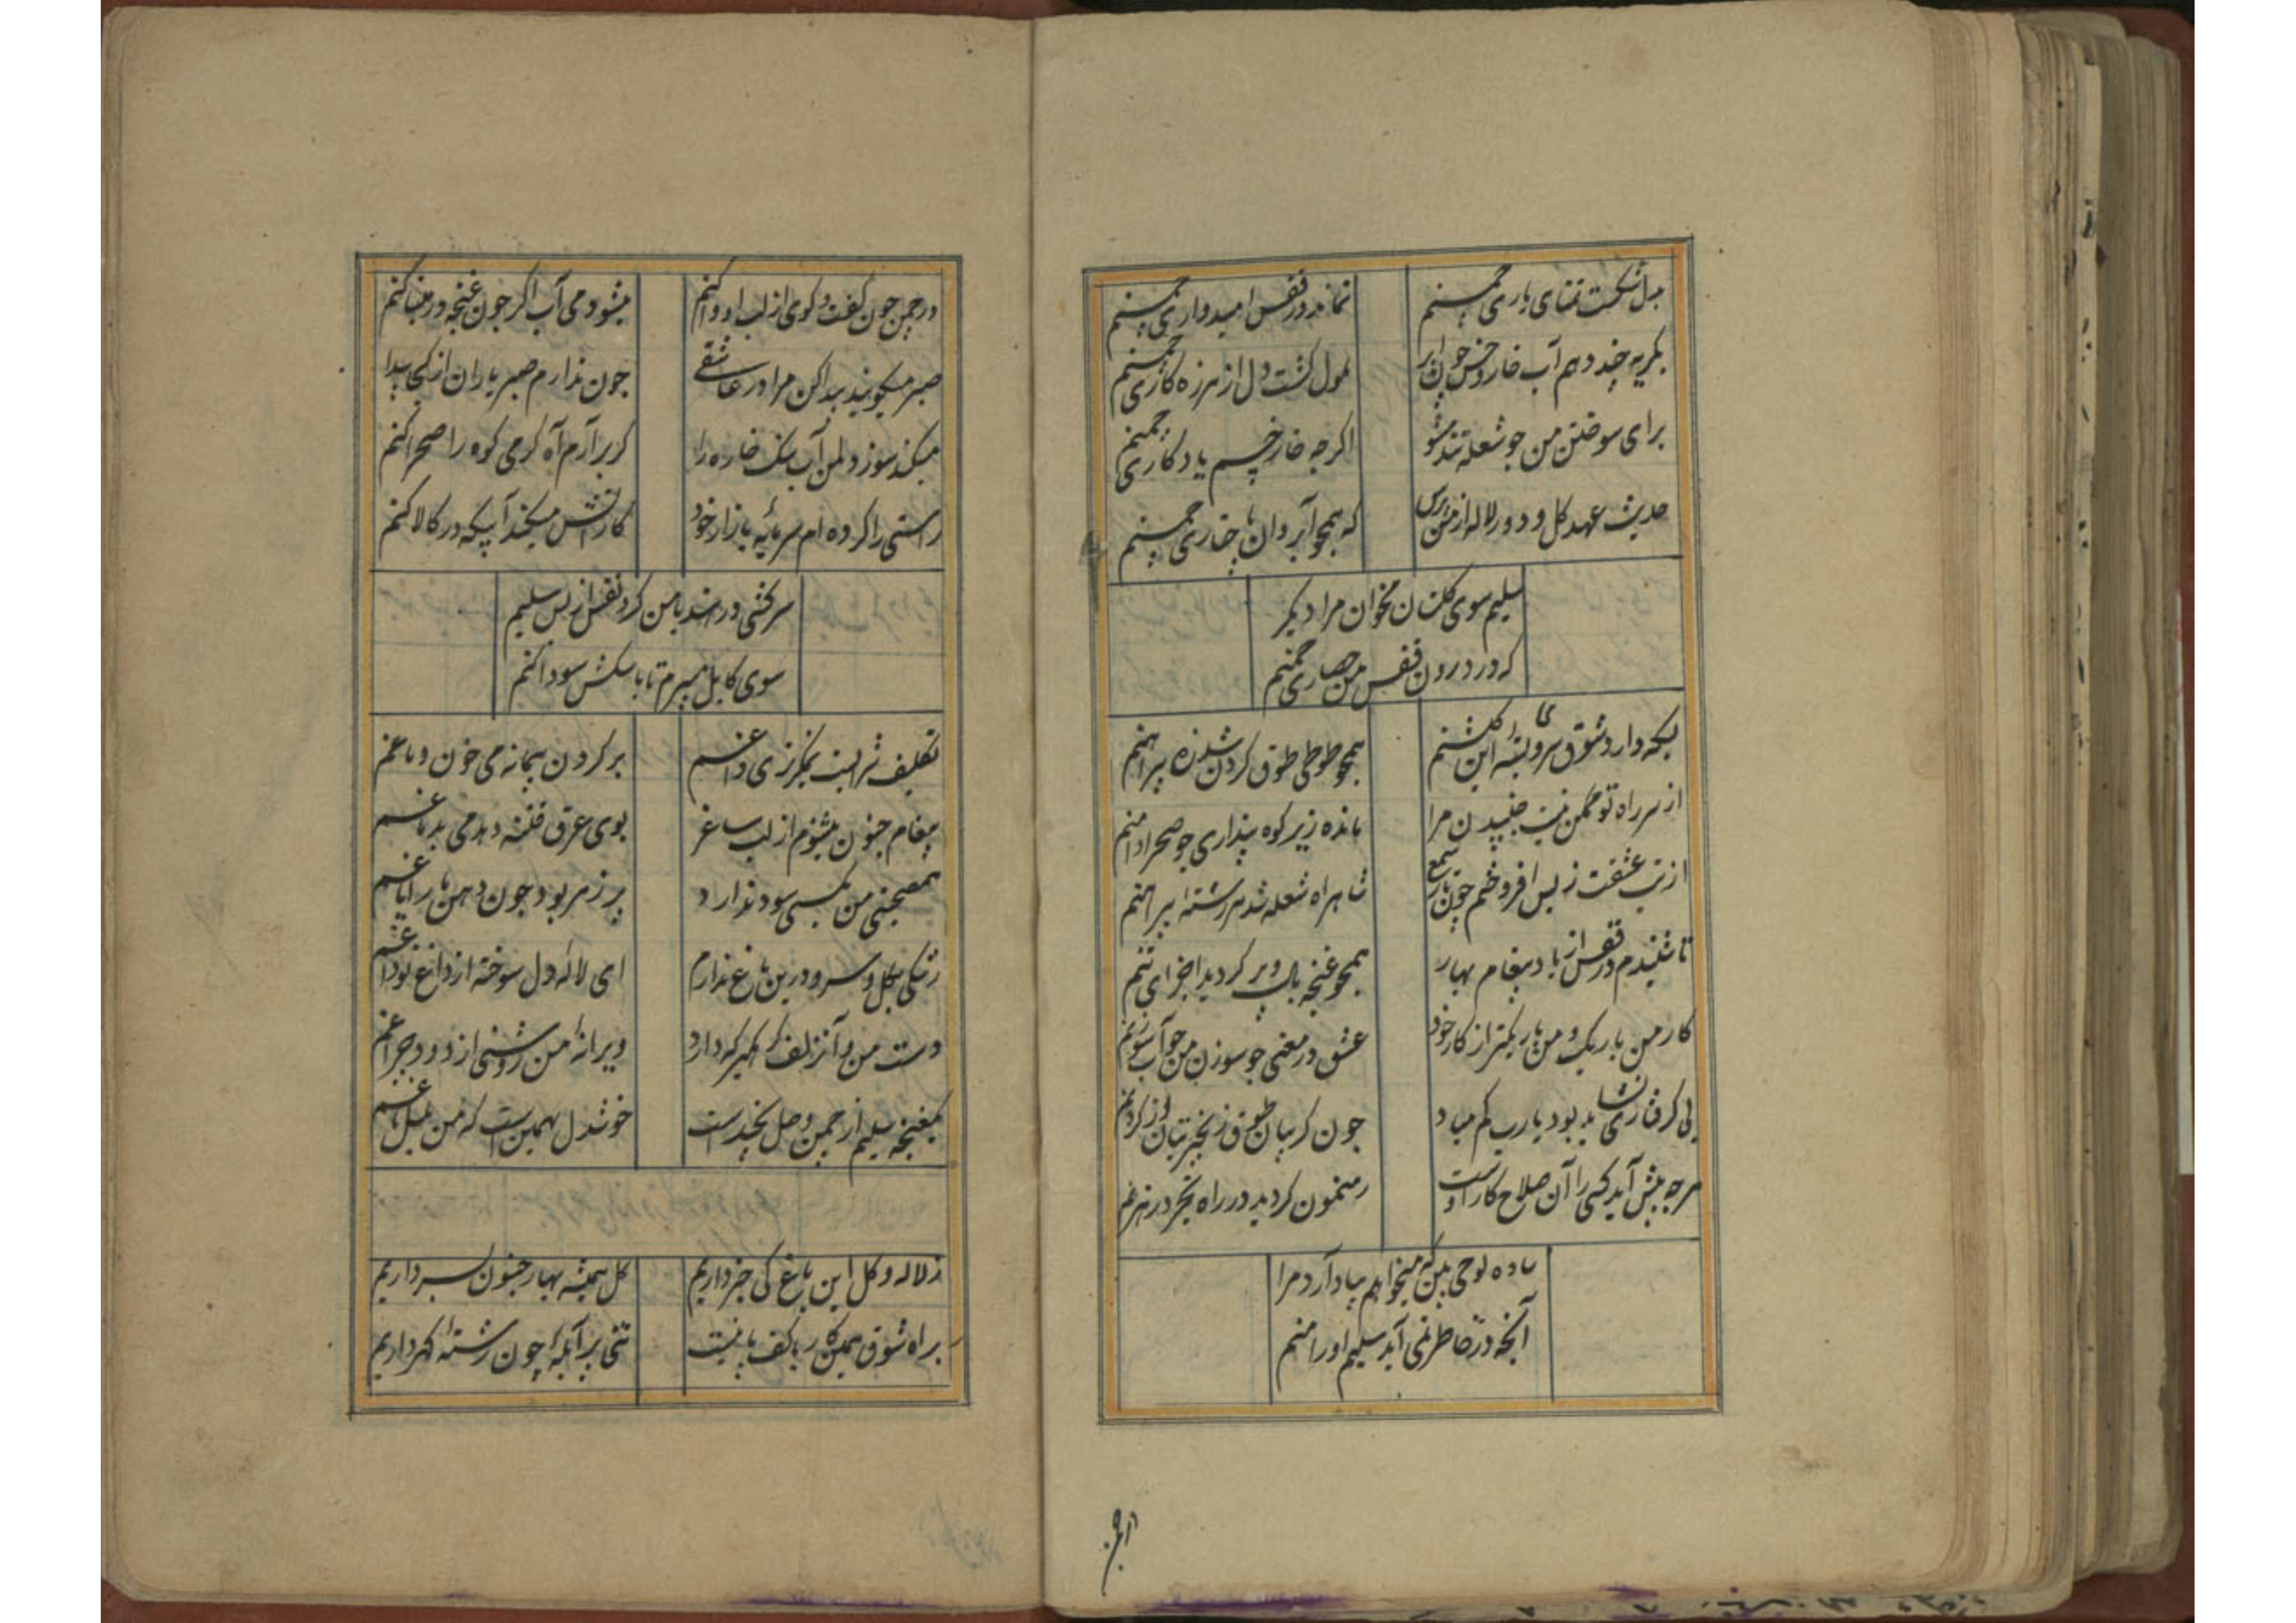 بدل شکست تمنای یاری چمنم نماند در قفس امیدواری چمنم
بگریه چند دهم آب خار و خس چون ابر ملول کشت دل از هرزه کاری چمنم
برای سوختن من چو شعله تند مشو اگرچه خار و خسم یادکاری چمنم
حدیث عهد کل و دور لاله از من پرس که همچو آب روان
سلیم سوی کلستان مخوان مرا دیکر
که در درون قفس من حصاری چمنم
بسکه دارد شوق سرو این کلشنم همچو طوطی طوق کردن شد زه پیراهنم
از سر راه تو ممکن نیست جنبیدن مرا مانده زیر کوه پنداری چو صحرا دامنم
از تب عشقت ز بس افروختم چون تار شمع شاهراه شعله شد هر رشته پیراهنم
تا شنیدم در قفس از باد پیغام بهار همچو غنچه بال و پر کردید اجزای تنم
کار من باریک و من باریکتر از کار خود عشق در معنی چو سوزن من چو آب سوزنم
بی کرفتاری نشاید بود یارب کم مباد چون کریبان طوق زنجیر بتان از کردنم
هرچه پیش آید کسی را آن صلاح کار اوست رهنمون کردید در راه تجرد رهزنم
ساده لوحی بین که میخواهم بیاد آرد مرا
آنچه در خاطر نمی آید سلیم او را منم
در چمن
در چمن چون کفت و کوی از لب او وا کنم میشود می آب اکر چون غنچه در مینا کنم
صبر میکویند پیدا کن مرا در عاشقی چون ندارم صبر یاران از کجا پیدا کنم
میکند سوز دلم آب سنک خاره را کر برآرم آه کرمی کوه را صحرا کنم
راستی را کرده ام سرمایه بازار خود کار آتش میکند آبیکه در کالا کنم
سرکشی در هند با من کرد نفس از بس سلیم
سوی کابل میبرم تا با سکش سودا کنم
تکلیف شرابست نمکریزی داغم پر کردن پیمانه می خون دماغم
پیغام جنون میشنوم از لب ساغر بوی عرق فتنه دهد می بدماغم
همصحبتی من بکسی سود ندارد پر زهر بود چون دهن مار ایاغم
رشکی بکل و سرو درین باغ ندارم ای لاله دل سوخته از داغ تو داغم
دست من و آن زلف دکر که دارد ویرانه من روشنی از دود چراغم
یک غنچه سلیم از چمن وصل نچیدست خوشدل بهمین است که من بلبل باغم
ز لاله و کل این باغ کی خبر داریم کل همیشه بهار جنون بسر داریم
براه شوق همین کار با کف پا نیست تنی پر آبله چون رشته کهر داریم